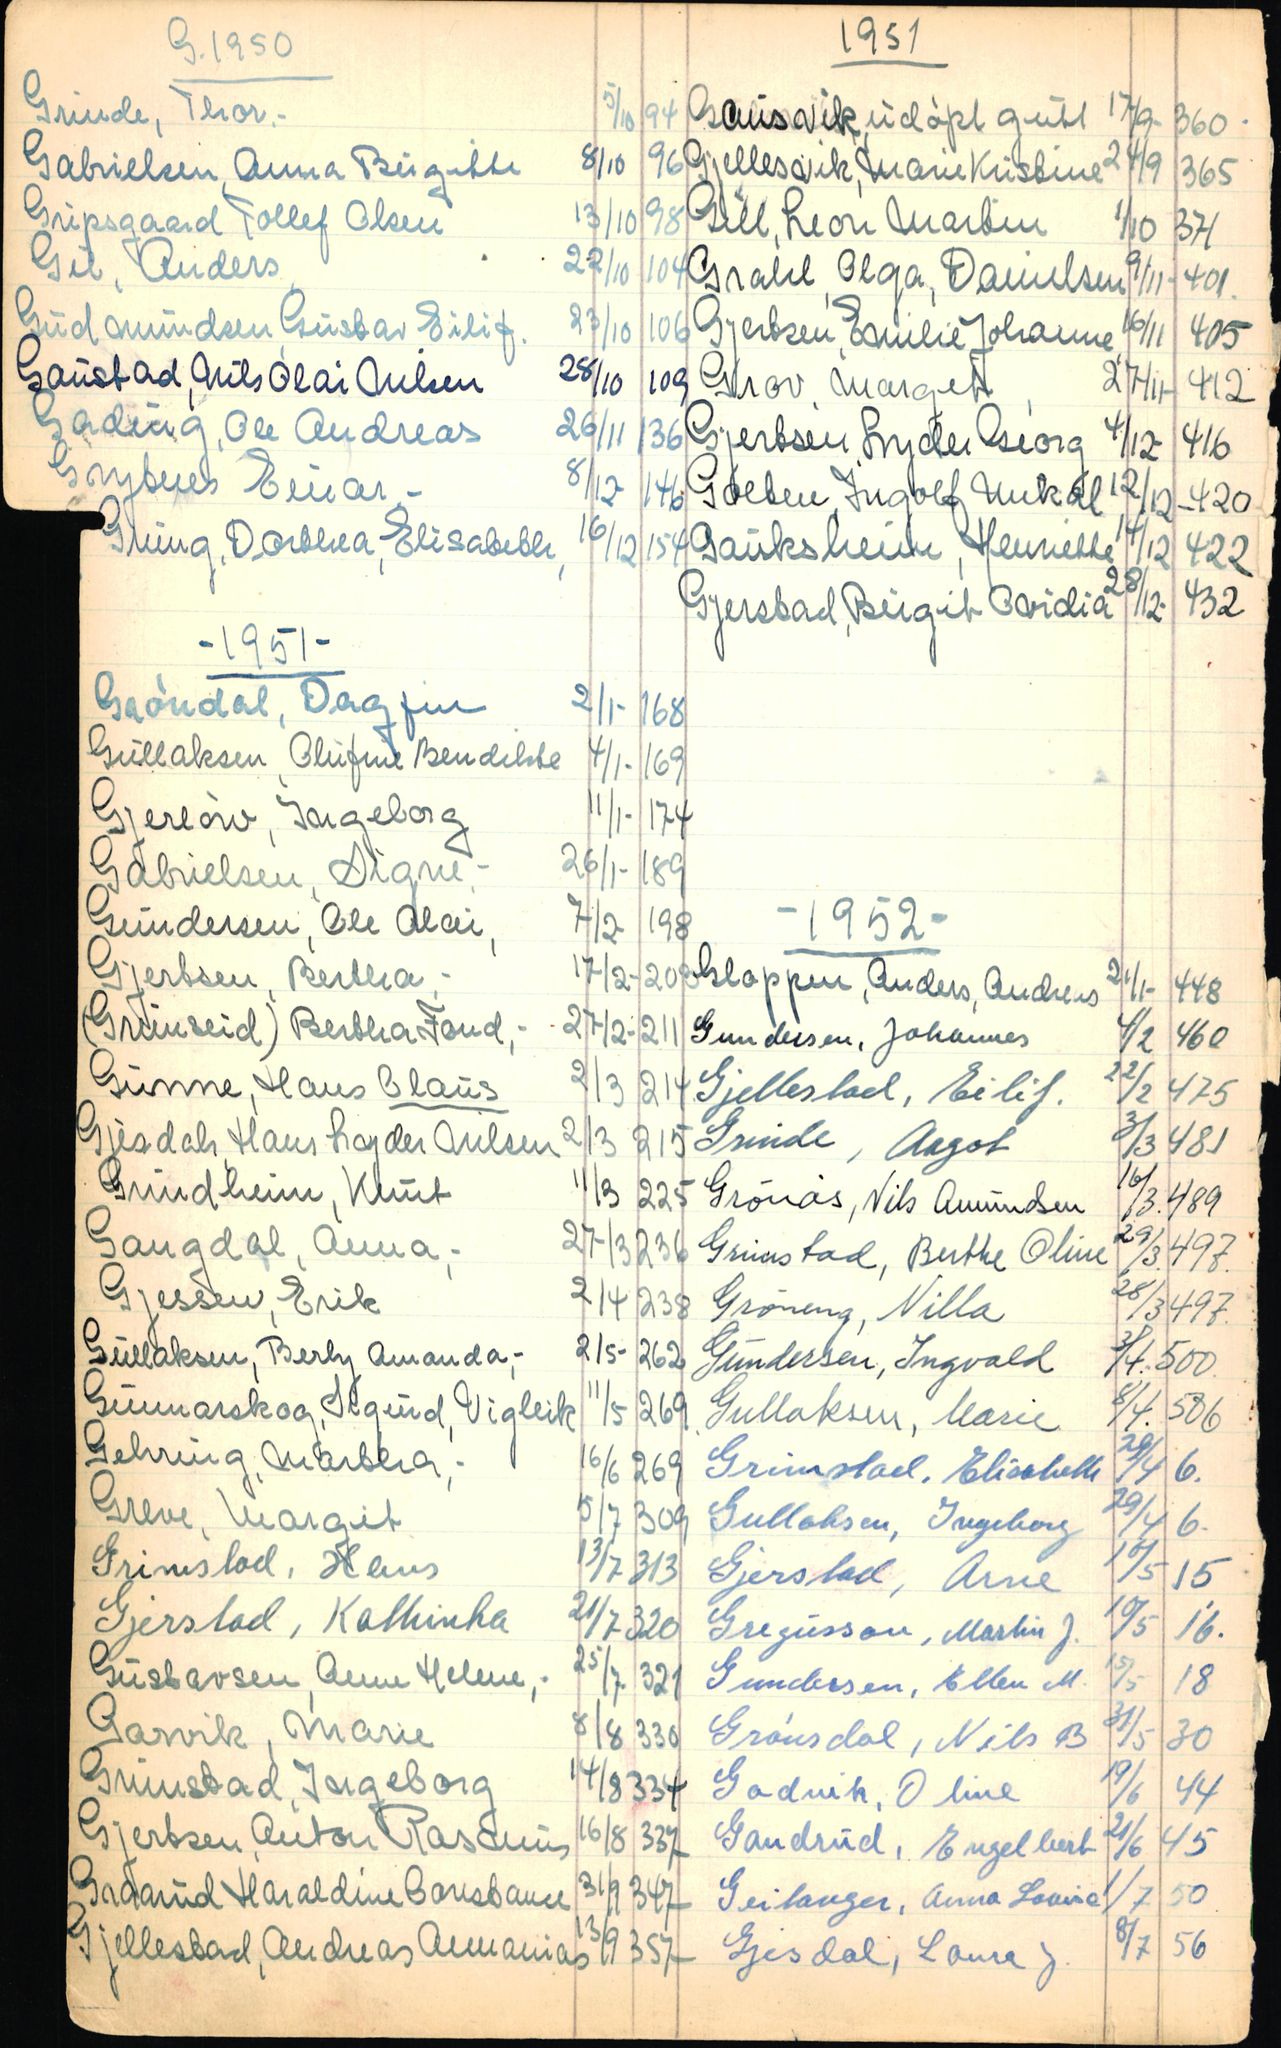 G. 1950
Grinde, Thor.- 5/10 94
Gabrielsen, Anna Birgitte 8/10 96
Gripsgaard Tollef Olsen 13/10 98
Gil, Anders 22/10 104
Gudmundsen, Gustav Eilif. 23/10 106
Gaustad, Nils Olai Nilsen 28/10 109
Gading, Ole Andreas 26/11 136
Grytnes Einar - 8/12 146
Gring, Dorthea, Elisabeth, 16/12 154
-1951-
Gröndal, Dagfin 2/1- 168
Gullaksen, Olufine Bendikte 4/1- 169
Gjerlöw, Ingeborg 11/1- 174
Gabrielsen, Signe,- 26/1- 189
Gundersen, Ole Olai, 7/2- 198
Gjertsen, Bertha,- 17/2- 208
(Grunseid) Bertha Fond,- 27/2- 211
Gunne, Hans Claus 2/3 214
Gjesdal, Hans Layder Nilsen 2/3 215
Grindheim, Knut 11/3 225
Gangdal, Anna,- 27/3 236
Gjessen, Erik 2/4 238
Gullaksen, Berly Amanda,- 2/5- 262
Gunnarskog, Sigurd, Vigleik 11/5 269
Gehring, Martha,- 16/6 269
Greve, Margit 5/7 309
Grimstad, Hans 13/7 313
Gjerstad, Kathinka 21/7 320
Gustavsen, Anne Helene,- 25/7 321
Garvik, Marie 8/8 330
Grimstad, Ingeborg 14/8 334
Gjertsen, Anton Rasmus 16/8 337
Graarud Haraldine Constance 31/9 347
Gjellestad, Andreas Annanias 13/9 357
1951
Gausvik, udöpt gutt 17/9- 360
Gjellesvik, Marie Kristine 24/9 365
Gill, Leon Martin 1/10 371
Grahl, Olga, Danielsen 9/11- 401
Gjertsen, Emilie Johanne 16/11 405
Grov, Margit, 27/11- 412
Gjertsen, Lyder Georg 4/12- 416
Golten, Ingolf Mikal 12/12- 420
Gauksheim, Henriette 14/12 422
Gjerstad, Birgit Ovidia 28/12- 432
-1952-
Gloppen, Anders, Andreas 21/1- 448
Gundersen, Johannes 4/2 460
Gjellestad, Eilif. 22/2 475
Grinde, Aagot 3/3 481
Grönås, Nils Amundsen 16/3. 489
Grimstad, Berthe Oline 29/3. 497.
Gröneng, Nilla 28/3 497.
Gundersen, Ingvald 3/4. 500.
Gullaksen, Marie 8/4. 506
Grimstad. Elisabeth 29/4 6.
Gullaksen, Ingeborg 29/4 6.
Gjerstad, Arne 10/5 15
Gregusson, Martin J. 10/5 16.
Gundersen, Ellen M. 15/5 18
Grönsdal, Nils B 31/5 30
Godvik, Oline 19/6 44
Gandrud, Engelbert 21/6 45
Geilanger, Anna Lovise 1/7 50
Gjesdal, Laura J. 8/7 56